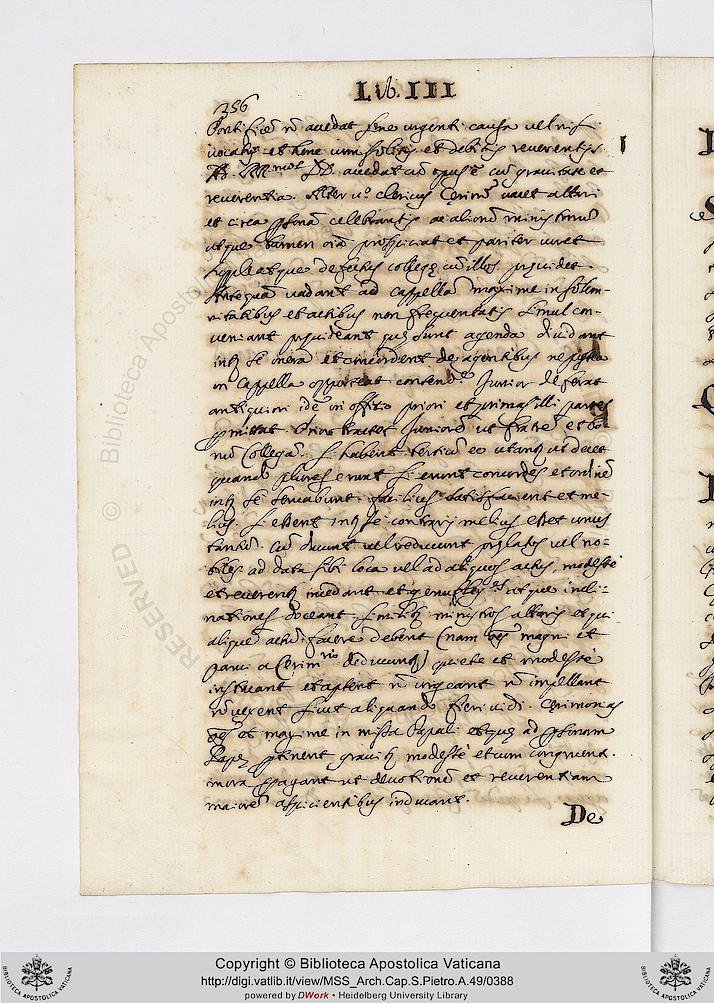 356
Lib. III
Pontificẽ nõ accedat sine urgenti causa vel nisi
vocatus et tunc cum solitis et debitis reverentijs
accedat cũ opus ẽ cũ gravitate et
reverentia. Alter vº clericus Cęrimº vacet altari
et circa psonã celebrantis ac aliorum ministrorũ
utque tamen oĩa prospiciat et pariter iuvet
suppleatque defectus collegę cũ illos previdet.
Antequã vadant ad cappellã maxime in solem-
nitatibus et actibus non frequentatis simul con-
veniant provideant quę sunt agenda dividant
inter se onera et concordent de agentibus ne postea
in Cappella opporteat contendere Junior deferat
antiquiori idẽ in offitio priori et primas illi partes
pmittat. Prior tractet Juniorẽ ut fratrẽ et bo-
nũ Collegã. Si habent tertium eo utantur ut decet
quando plures erunt si erunt concordes et ordinẽ
inter se servabunt facilius satisfacient et me-
lius. Si essent inter se contrarij melius esset unus
tantũ. Cũ ducunt vel reducunt prelatos vel no-
biles ad data sibi loca vel ad aliquos actus modeste
et reverenter incedant et genuflexiones atque incli-
nationes doceant similiter ministros altaris et qui
aliquẽ actũ facere debent (nam oẽs magni et
parvi a Cęrimrijs deducuntur) quiete et modeste
instruant et aptent nõ urgeant nõ impellant
nõ vexent sicut aliquando fieri vidi. Cęrimonias
oẽs et maxime in missa Papali et quę ad psonam
Papę ptinent graviter modeste et cum congruenti
mora peragant ut devotionẽ et reverentiam
maiorẽ aspicientibus inducant.
De
RESERVED © Biblioteca Apostolica
Copyright © Biblioteca Apostolica Vaticana
http://digi.vatlib.it/view/MSS_Arch.Cap.S.Pietro.A.49/0388
powered by DWork • Heidelberg University Library
BIBLIOTECA APOSTOLICA VATICANA
BIBLIOTECA APOSTOLICA VATICANA